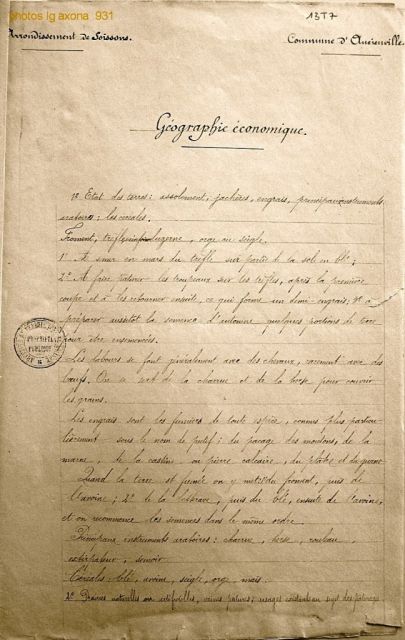 photos lg axona 931
13T7
Arrondissement de Soissons.
Commune d'Ancienville.
Géographie économique.
1º Etat des terres: assolement, jachères, engrais, principaux instruments
aratoires; les céréales.
Froment, trèfle, luzerne, orge ou seigle.
1º A semer en mars du trèfle sur partie de la sole en blé;
2º A faire pâturer les troupeaux sur les trèfles, après la première
coupe et à les retourner ensuite, ce qui forme un demi-engrais; 3º à
préparer aussitôt la semence d'automne quelques portions de terre
pour être ensemencées.
Les labours se font généralement avec des chevaux, rarement avec des
bœufs. On se sert de la charrue et de la herse pour couvrir
les grains.
Les engrais sont les fumiers de toute espèce, connus plus particu-
lièrement sous le nom de ; du parcage des moutons, de la
marne, de la castine ou pierre calcaire, du plâtre et du guano
Quand la terre est fumée on y met: 1º du froment, puis de
l'avoine; 2º de la betterave, puis du blé, ensuite de l'avoine,
et on recommence les semences dans le même ordre.
Principaux instruments aratoires: charrue, herse, rouleau,
extirpateur, semoir.
Céréales: blé, avoine, seigle, orge, maïs.
2º Prairies naturelles ou artificielles, vaines pâtures; usages au sujet des pâturages